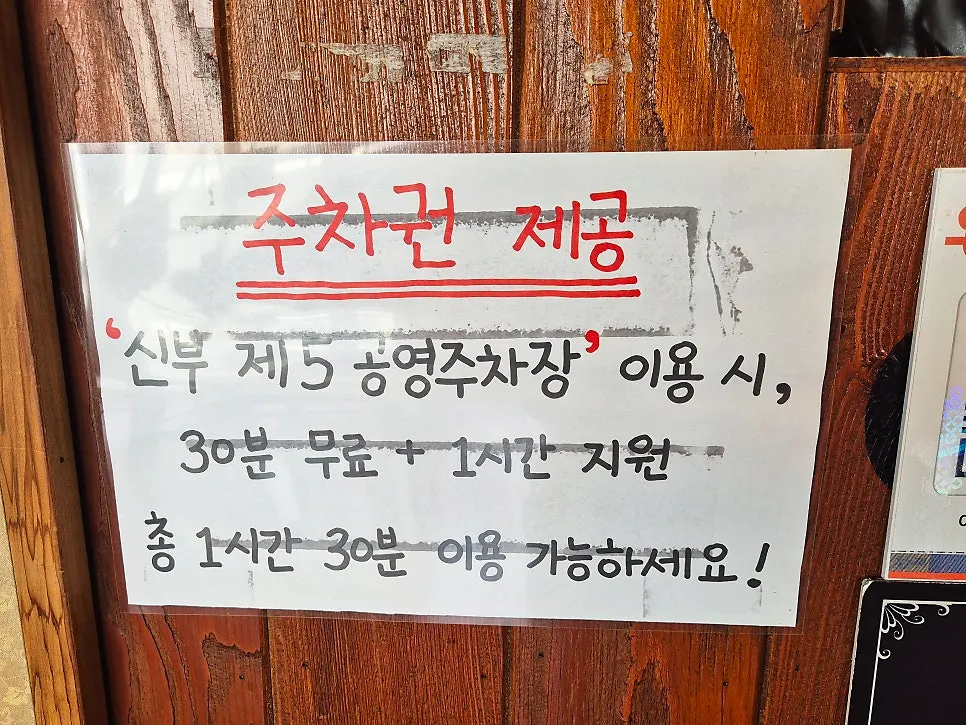 주차권 제공
'신부 제5 공영주차장' 이용 시,
30분 무료 + 1시간 지원
총 1시간 30분 이용 가능하세요!